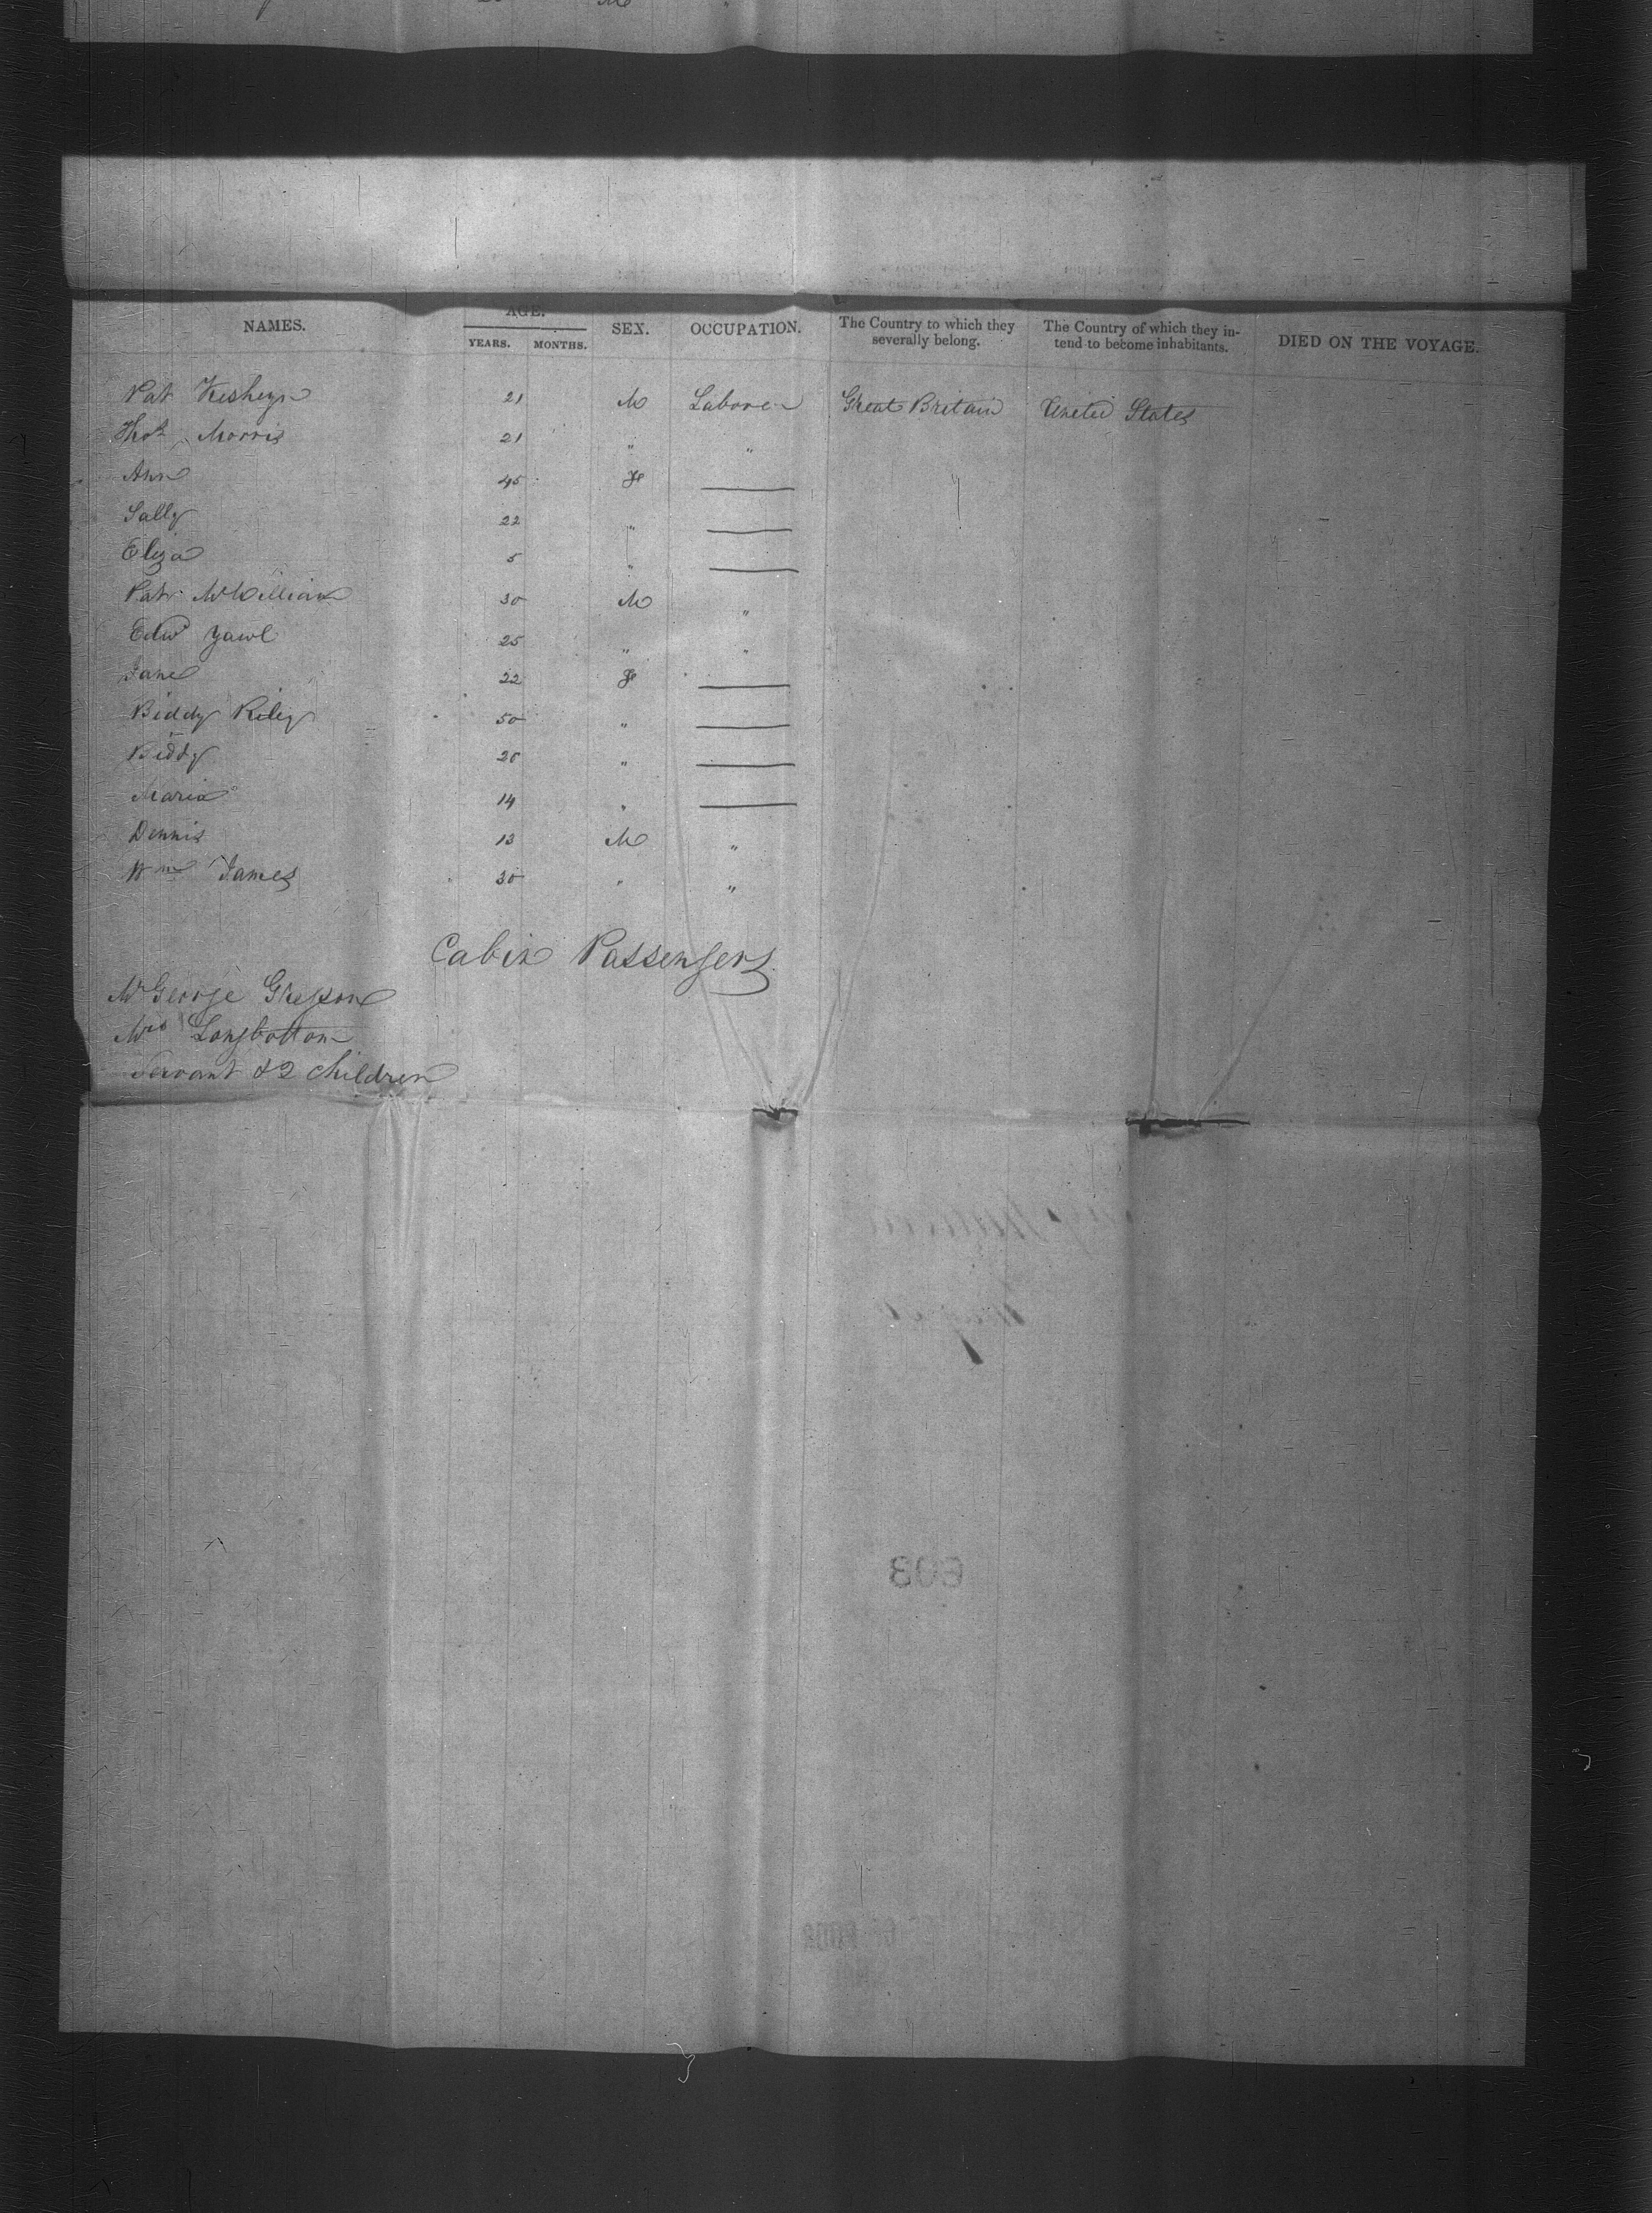 M "
NAMES. AGE. SEX. OCCUPATION. The Country to which they severally belong. The Country of which they in- tend to become inhabitants. DIED ON THE VOYAGE.
YEARS. MONTHS.
Pat 21 M Laborer Great Britain United States
Thos Morris 21 " "
Ann 45 F
Sally 22 "
Eliza 5 "
Pat McWilliam 30 M "
Edwd Yawl 25 " "
Jane 22 F
Biddy Riley 50 "
Biddy "
Maria 14 "
Dennis 13 M "
Wm James 30 " "
Cabin Passengers
Mr George Gregson
Mrs Longbottom
Servant & 2 children